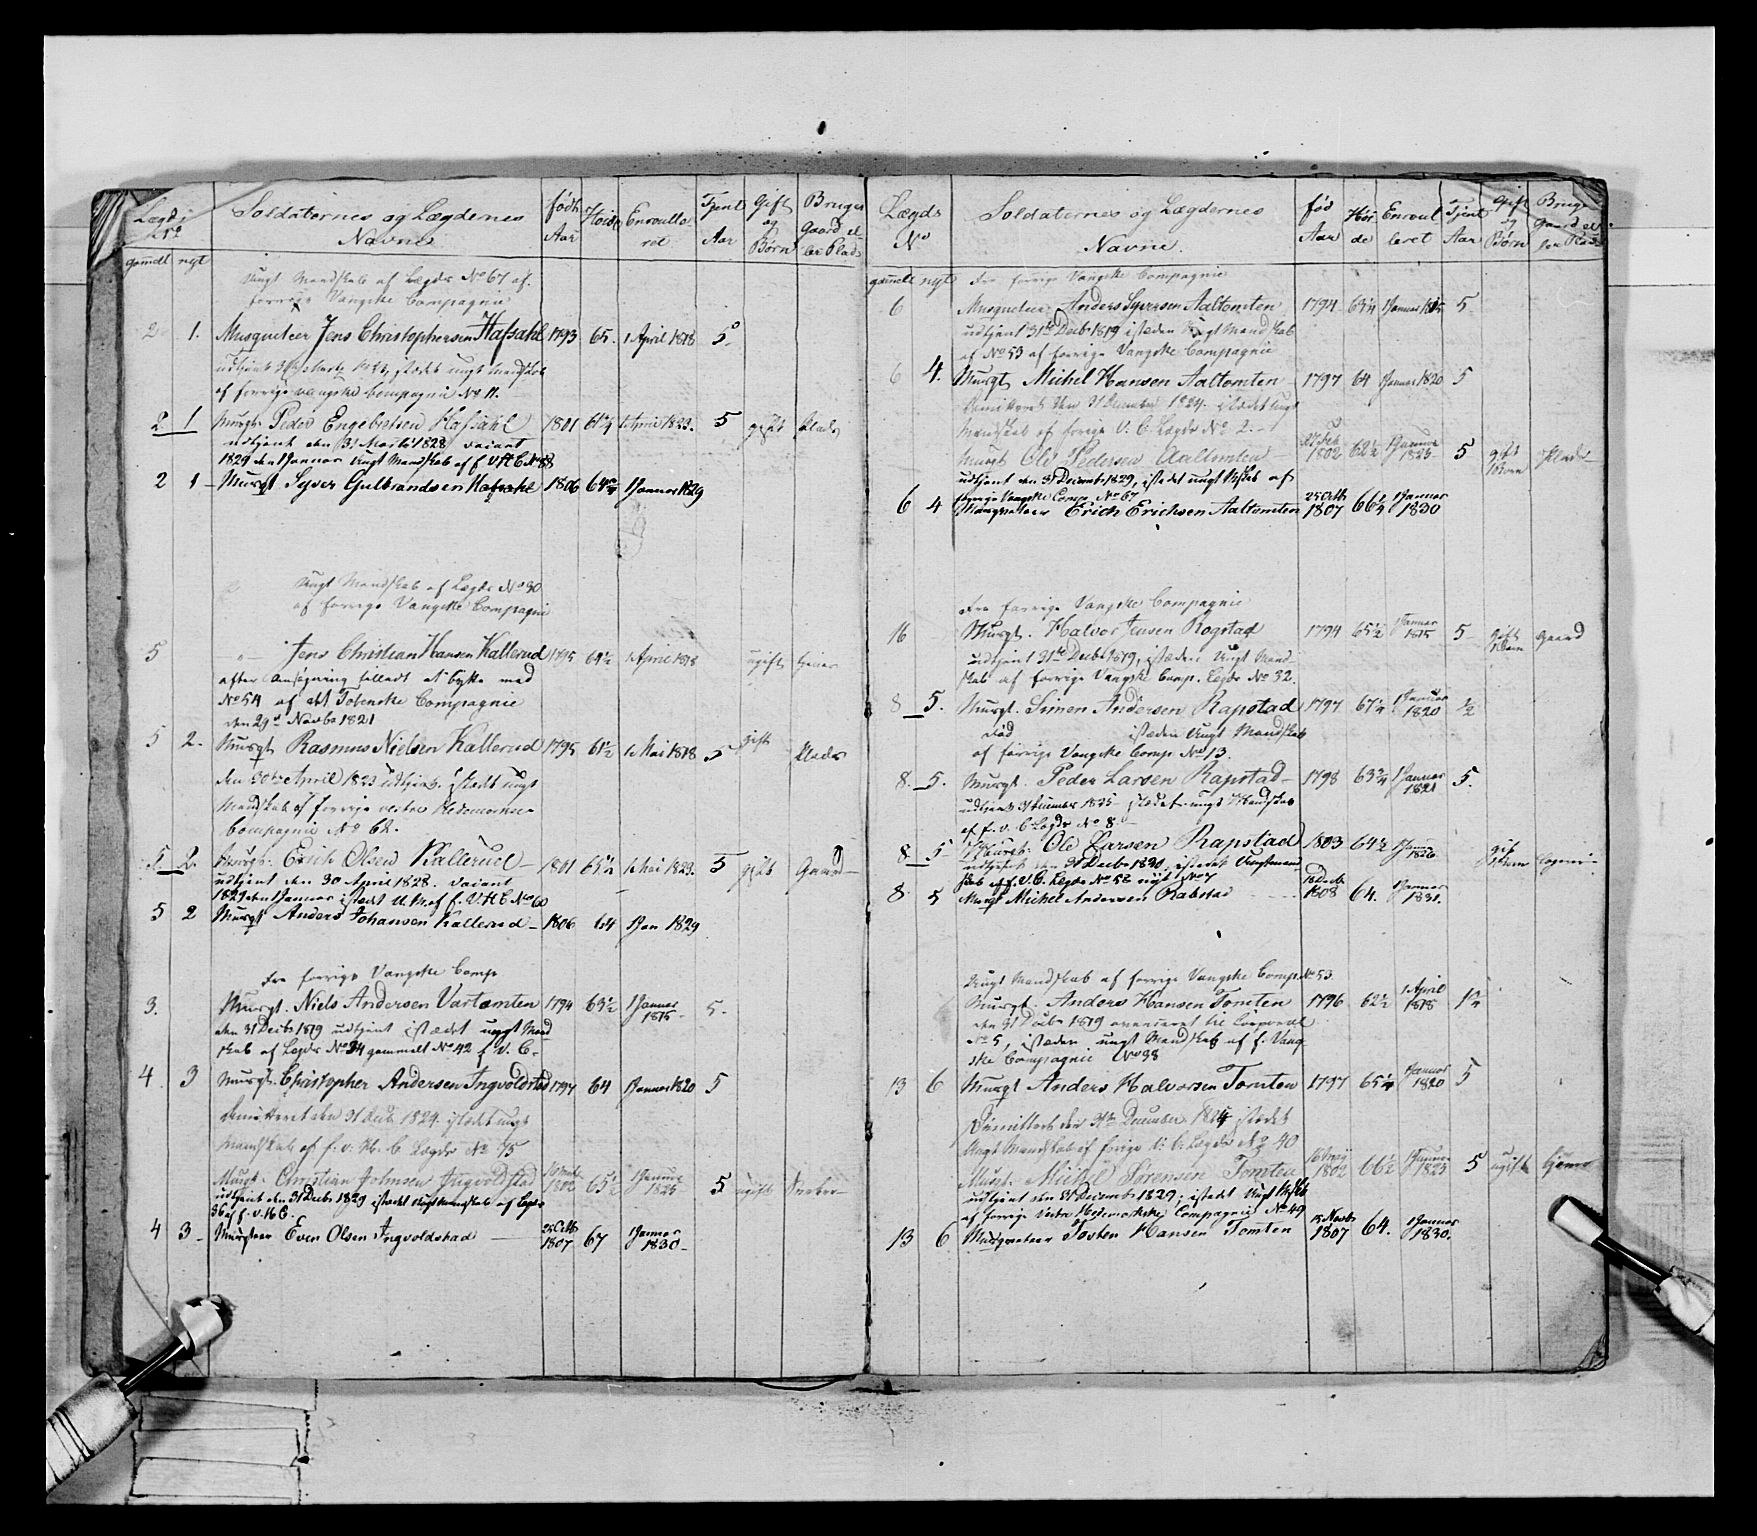 Lægds No
Soldaternes og Lægdernes Navne
født Aar
Høide
Enroulleret
Tjent Aar
Gift og Børn
Bruger Gaard eller Plads
gamelt nyt
Ungt Mandskab af Lægds No 67 af
forrige Vangske Compagnie
2 1. Musqueteer Jens Christophersen Hafsahl 1793 65. 1 April 1818 5.
udtjent istædet ungt Mandskab
af forrige Vangske Compagnie No 11.
2 1 Musqt. Peder Engebretsen Hafsahl 1801 61¼ 1 April 1823. 5 gift Plads
udtjent den 31 Marts 1828 vacant
1829 den 1 Januar Ungt Mandskab af f V H C No 88
2 1 Musqt Syver Gulbrandsen Hafsahl 1806 64¾ 1 Januar 1829
Ungt Mandskab af Lægds No 30
af forrige Vangske Compagni
5 Jens Christian Hansen Kallerud 1795 69½ 1 April 1818 ugift
efter Ansøgning tilladt at bytte med
No 54 af det Totenske Compagnie
den 29de Novbr 1821
5 2. Musqt Rasmus Nielsen Kallerud 1795 61½ 1 Mai 1818 5 gift Plads
den 30te April 1823 udtjent. istædt ungt
Mandskab af forrige vestre Hedemarkens
Compagnie No 62.
5 2. Musqt. Erich Olsen Kallerud 1801 65¼ 1 Mai 1823. 5 gift Gaard
udtjent den 30 April 1828. vacant
1829 den 1 Januar istædt U M af f. V H C No 60
5 2 Musqt Anders Johansen Kallerud 1806 64 1 Jan 1829
fra forrige Vangske Comp
3. Musqt. Niels Andersen Vartomten 1794 63½ 1 Januar 1815 5.
den 31 Decbr 1819 udtjent istædet ungt Mand
skab af Lægds No 34 gammelt No 42 f. V. C.
4 3 Musqt. Christopher Andersen Ingvoldstad 1797 64 1 Januar 1820 5
Demitteret den 31 Decbr 1824. istædet ungt
Mandskab af f. v. H. C Lægds No 75
Musqt. Christian Johnsen Ingvoldstad 1802 65½ 1 Januar 1825 5 ugift
udtjent den 31 Decbr 1829 istædet Ungt Mandskab af Lægds
36 af f. V. H C.
4 3 Musqteer Even Olsen Ingvoldstad 25 Octb 1807 67 1 Januar 1830
Lægds No
Soldaternes og Lægdernes Navne.
fød Aar
Høide
Enroulleret
Tjent Aar
Gift og Børn
Bruger Gaard eller Plads
gamelt nyt
fra forrige Vangske Compagnie
6 Musqueteer Anders Syversen Aaltomten 1794 63¼ 1 Januar 1815 5
udtjent 31te Decbr 1819 istæden Ungt Mandskab
af No 53 af forrige Vangske Compagnie
6 4. Musqt Michel Hansen Aaltomten 1797 64 1 Januar 1820 5
Demitteret den 31 December 1824. istædet ungt
Mandskab af forrige V. C Lægds No 2.
Musqt Ole Pedersen Aaltomten 1802 62½ 1 Januar 1825 5 gift 1 Barn Plads
udtjent den 31 Decembr 1829, istædet ungt Mskab af
forrige Vangske Comp No 67
6 4 Musqueteer Erich Erichsen Aaltomten 25 Octb 1807 66¼ 1 Januar 1830
Fra forrige Vangske Compagnie
16 Musqt. Halvor Jensen Rogstad 1794 65½ 1 Januar 1815 5 gift 1 Barn Gaard
udtjent 31te Decbr 1819, istæden Ungt Mand-
skab af forrige Vangske Comp. Lægds No 32.
8 5. Musqt. Simen Andersen Rapstad 1797 67¼ 1 Januar 1820 ½
død istæden Ungt Mandskab
af forrige Vangske Comp No 13.
8. 5. Musqt. Peder Larsen Rapstad 1798 63¾ 1 Januar 1821 5.
udtjent 31 December 1825 istædet ungt Mandskab
af f. v. C Lægds No 8.
8 5 Musqt: Ole Larsen Rapstad 1803 64½ 1 Januar 1826 gift 1 Barn
udtjent den 31 Decbr 1830, istædet Ungt Mand
skab af f. V. C. Lægds No 52 nyt No 7
8 5 Musqt Michel Andersen Rabstad 1808 64. 1 Januar 1831.
Ungt Mandskab af forrige Vangske Comp No 53
Musqt. Anders Hansen Tomten 1796 62½ 1 April 1818 1¾
den 31 Decbr 1819 avanceret til Corporal
No 5, istæden ungt Mandskab af f. Vang
ske Compagnie No 38
13 6 Musqt Anders Halvorsen Tomten 1797 65¼ 1 Januar 1820 5
Dimitteret den 31te December 1824 istædet
Ungt Mandskab af forige V. C. Lægds No 40
Musqt. Michel Sørensen Tomten 1802 66½ 1 Januar 1825 5 ugift hjeme
udtjent den 31 Decembr 1829; istædet Ungt Mskab
af forrige Vestre Hedemarkske Compagnie No 49
13 6 Musqueteer Iosten Hansen Tomten 15 Novbr 1807 64. 1 Januar 1830.